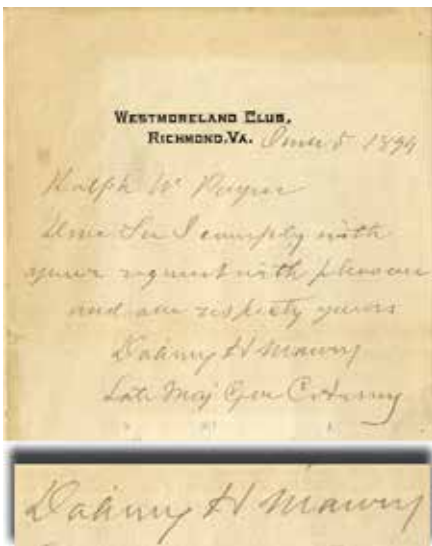 WESTMORELAND CLUB,
RICHMOND, VA. June 5 1894
Ralph W Payne
Dear Sir I comply with
your request with pleasure
and am respcty yours
Dabney H Maury
Late Maj Gen C. Army
Dabney H Maury